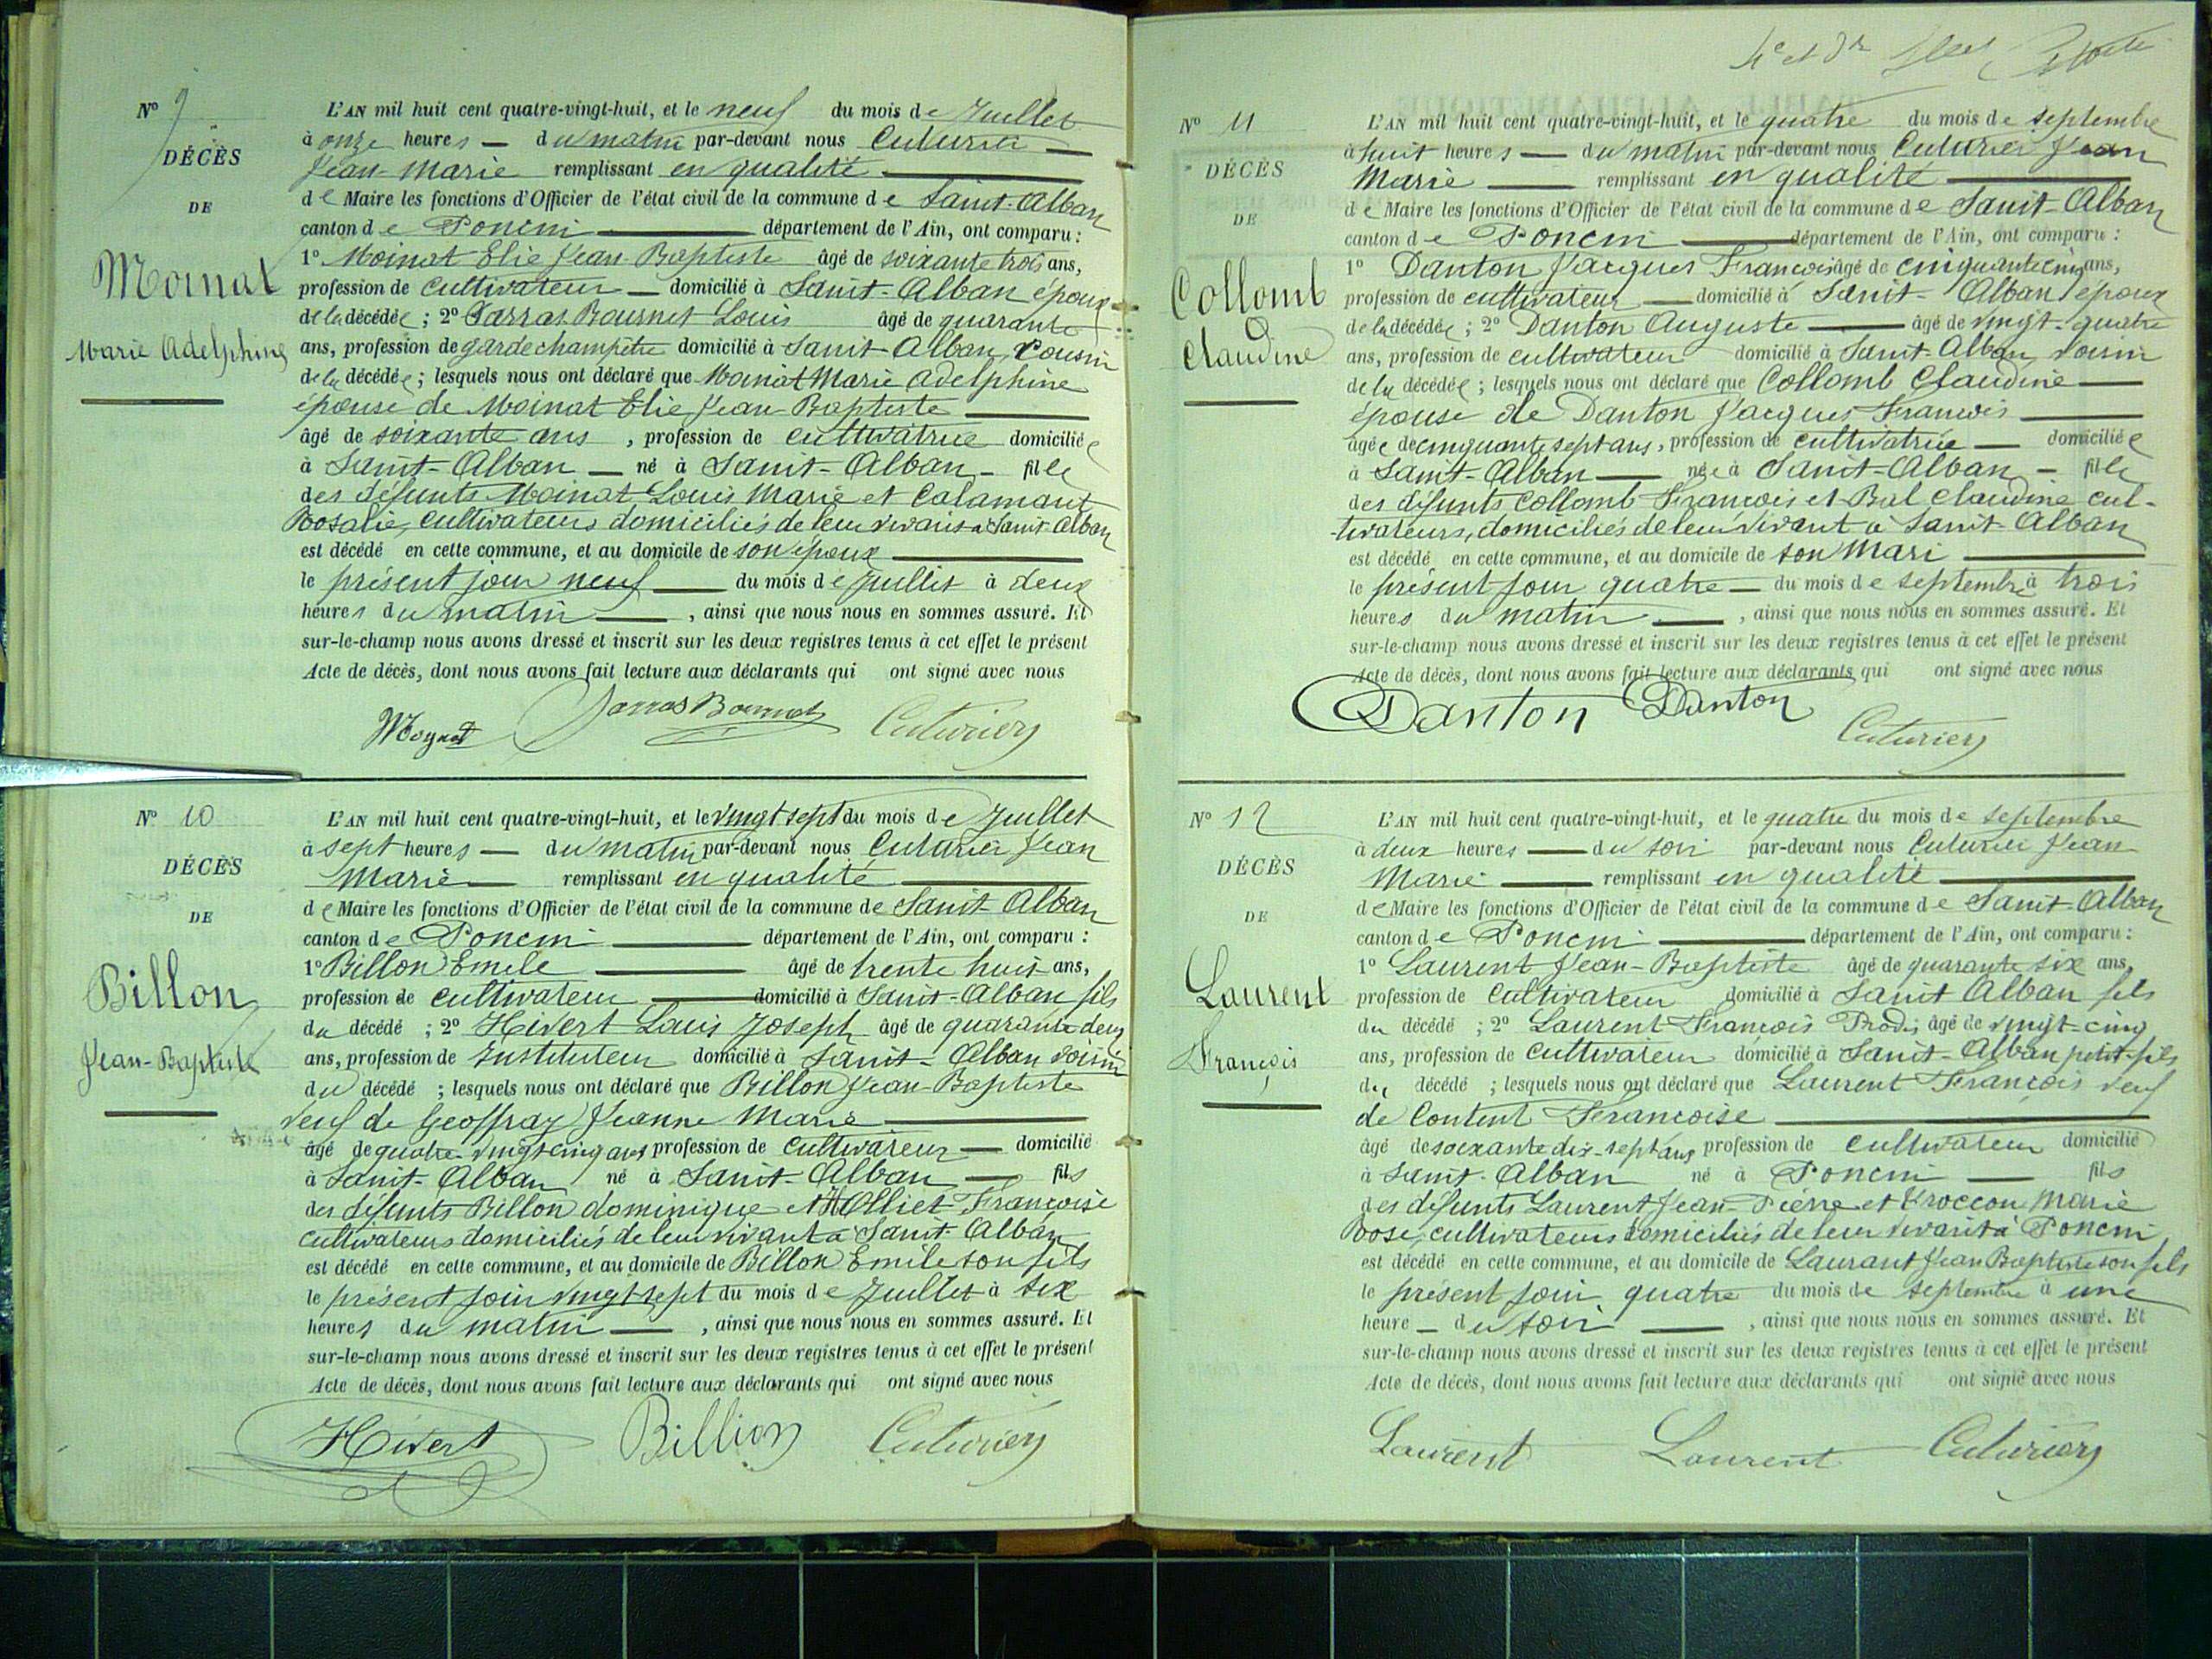 N° 9
DÉCÈS
DE
Moinat
Marie Adelphine
L'AN mil huit cent quatre-vingt-huit, et le neuf du mois de Juillet
à onze heures — du matin par-devant nous Cuturier —
Jean-Marie remplissant en qualité
de Maire les fonctions d'Officier de l'état civil de la commune de Saint-Alban
canton de Poncin département de l'Ain, ont comparu :
1° Moinat Elie Jean-Baptiste âgé de soixante trois ans,
profession de cultivateur — domicilié à Saint-Alban époux
de la décédée ; 2° Sarras Bournet Louis âgé de quarante
ans, profession de garde champêtre domicilié à Saint-Alban, cousin
de la décédée ; lesquels nous ont déclaré que Moinat Marie Adelphine
épouse de Moinat Elie Jean-Baptiste
âgé de soixante ans , profession de cultivatrice domiciliée
à Saint-Alban — né à Saint-Alban — fille
des défunts Moinat Louis Marie et Calamant
Rosalie, cultivateurs domiciliés de leur vivant à Saint-Alban
est décédé en cette commune, et au domicile de son époux
le présent jour neuf — du mois de Juillet à deux
heures du matin — , ainsi que nous nous en sommes assuré. Et
sur-le-champ nous avons dressé et inscrit sur les deux registres tenus à cet effet le présent
Acte de décès, dont nous avons fait lecture aux déclarants qui ont signé avec nous
Moynat Sarras Bournet Cuturier
N° 10
DÉCÈS
DE
Billon
Jean-Baptiste
L'AN mil huit cent quatre-vingt-huit, et le vingt sept du mois de Juillet
à sept heures — du matin par-devant nous Cuturier Jean
Marie — remplissant en qualité
de Maire les fonctions d'Officier de l'état civil de la commune de Saint-Alban
canton de Poncin département de l'Ain, ont comparu :
1° Billon Emile âgé de trente huit ans,
profession de cultivateur — domicilié à Saint-Alban fils
du décédé ; 2° Hivert Louis Joseph âgé de quarante deux
ans, profession de Instituteur domicilié à Saint-Alban voisin
du décédé ; lesquels nous ont déclaré que Billon Jean-Baptiste
veuf de Geoffray Jeanne Marie
âgé de quatre-vingt cinq ans profession de cultivateur — domicilié
à Saint-Alban né à Saint-Alban — fils
des défunts Billon dominique et Olliet Françoise
cultivateurs domiciliés de leur vivant à Saint-Alban
est décédé en cette commune, et au domicile de Billon Emile son fils
le présent jour vingt sept du mois de Juillet à six
heures du matin — , ainsi que nous nous en sommes assuré. Et
sur-le-champ nous avons dressé et inscrit sur les deux registres tenus à cet effet le présent
Acte de décès, dont nous avons fait lecture aux déclarants qui ont signé avec nous
Hivert Billion Cuturier
N° 11
DÉCÈS
DE
Collomb
Claudine
L'AN mil huit cent quatre-vingt-huit, et le quatre du mois de septembre
à huit heures — du matin par-devant nous Cuturier Jean
Marie — remplissant en qualité
de Maire les fonctions d'Officier de l'état civil de la commune de Saint-Alban
canton de Poncin — département de l'Ain, ont comparu :
1° Danton Jacques François âgé de cinquante cinq ans,
profession de cultivateur — domicilié à Saint-Alban époux
de la décédée ; 2° Danton Auguste — âgé de vingt-quatre
ans, profession de cultivateur domicilié à Saint-Alban, voisin
de la décédée ; lesquels nous ont déclaré que Collomb Claudine —
épouse de Danton Jacques Francois
âgée de cinquante sept ans, profession de cultivatrice — domiciliée
à Saint-Alban — née à Saint-Alban — fille
des défunts Collomb François et Bal Claudine cul-
-tivateurs, domiciliés de leur vivant à Saint-Alban
est décédé en cette commune, et au domicile de son Mari
le présent jour quatre — du mois de septembre à trois
heures du matin — , ainsi que nous nous en sommes assuré. Et
sur-le-champ nous avons dressé et inscrit sur les deux registres tenus à cet effet le présent
Acte de décès, dont nous avons fait lecture aux déclarants qui ont signé avec nous
Danton Danton Cuturier
N° 12
DÉCÈS
DE
Laurent
François
L'AN mil huit cent quatre-vingt-huit, et le quatre du mois de septembre
à deux heures — du soir par-devant nous Cuturier Jean
Marie — remplissant en qualité
de Maire les fonctions d'Officier de l'état civil de la commune de Saint-Alban
canton de Poncin — département de l'Ain, ont comparu :
1° Laurent Jean-Baptiste âgé de quarante six ans,
profession de cultivateur domicilié à Saint Alban fils
du décédé ; 2° Laurent François âgé de vingt-cinq
ans, profession de cultivateur domicilié à Saint-Alban petit-fils
du décédé ; lesquels nous ont déclaré que Laurent François veuf
de Content Francoise
âgé de soixante dix-sept ans profession de cultivateur domicilié
à Saint-Alban né à Poncin — fils
des défunts Laurent Jean-Pierre et Marie
Rose, cultivateurs domiciliés de leur vivant à Poncin
est décédé en cette commune, et au domicile de Laurant Jean Baptiste son fils
le présent jour quatre du mois de septembre à une
heure — du soir — , ainsi que nous nous en sommes assuré. Et
sur-le-champ nous avons dressé et inscrit sur les deux registres tenus à cet effet le présent
Acte de décès, dont nous avons fait lecture aux déclarants qui ont signé avec nous
Laurent Laurent Cuturier